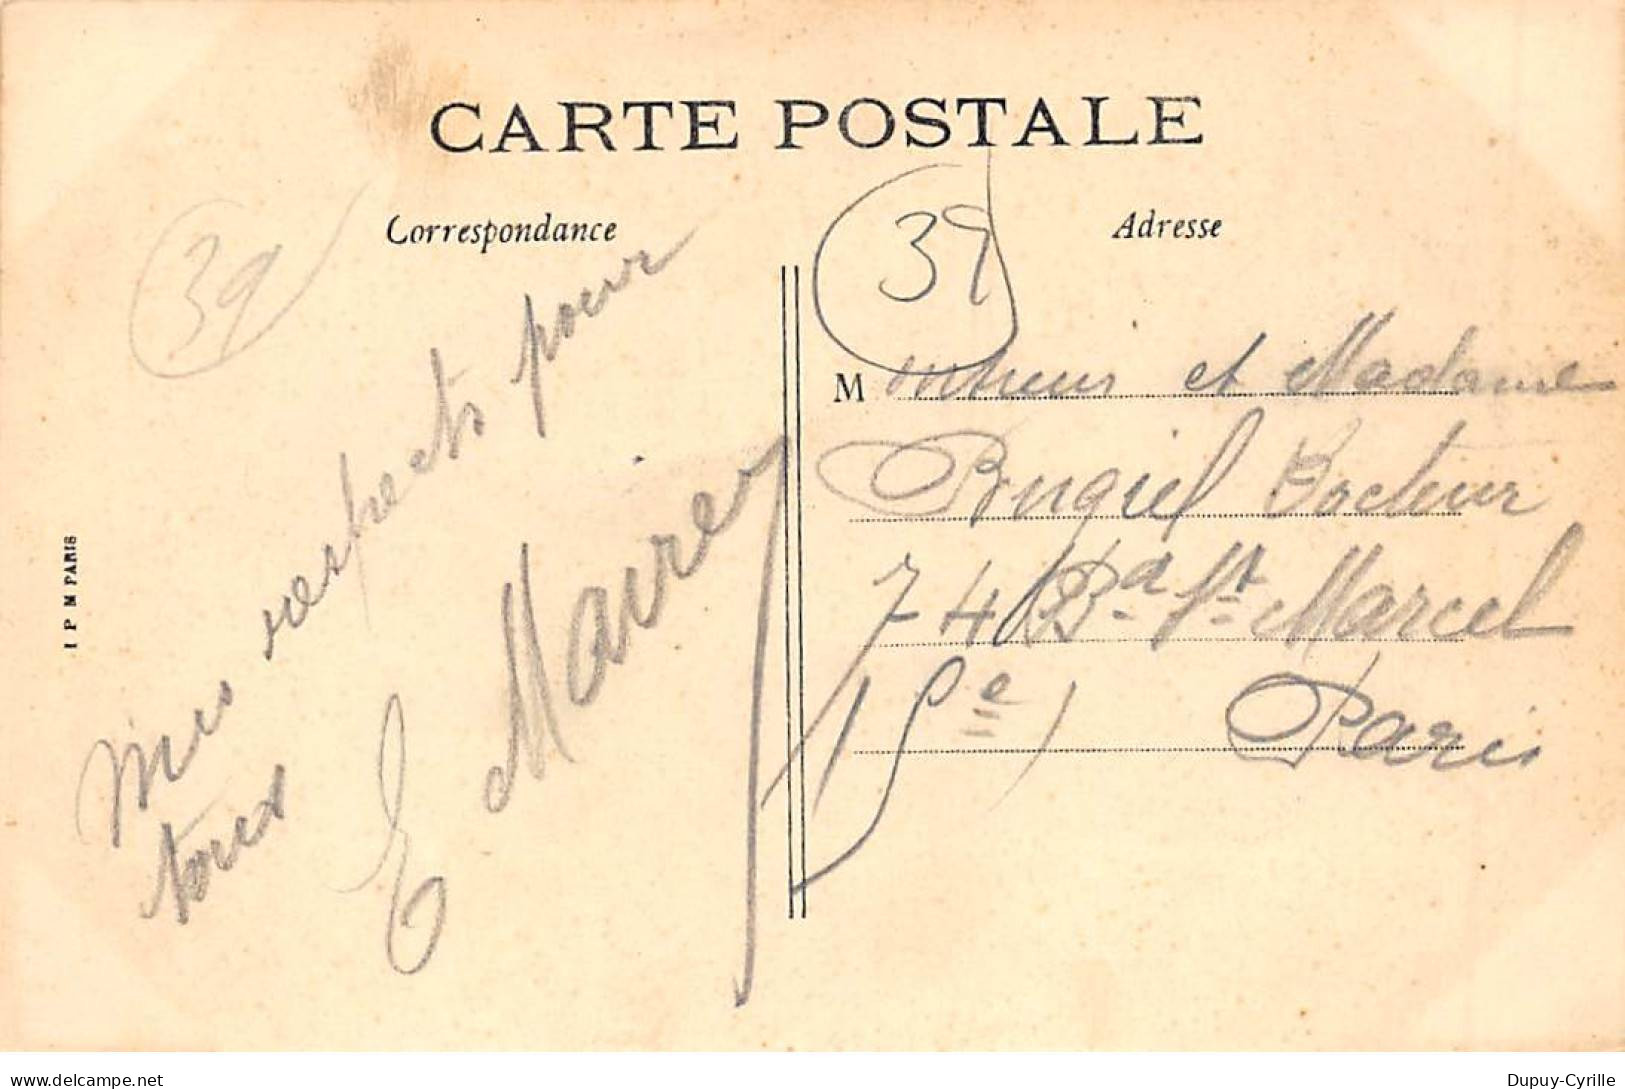 CARTE POSTALE
Correspondance
Adresse
39
39
Monsieur et Madame
Docteur
74 Bd St Marcel
Paris
Mes respects pour
tous
E Mairey
I P M PARIS
delcampe.net
Dupuy-Cyrille